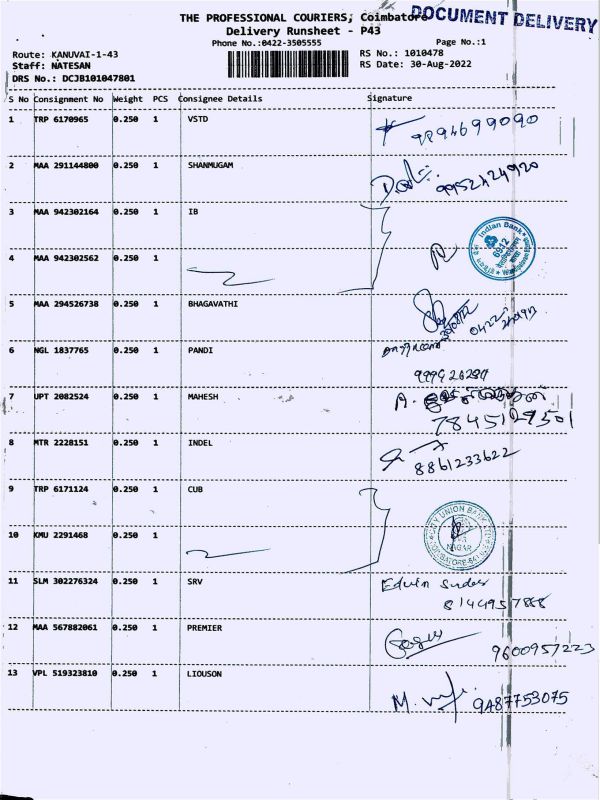 THE PROFESSIONAL COURIERS, Coimbatore
DOCUMENT DELIVERY
Delivery Runsheet - P43
Phone No.:0422-3505555 Page No.:1
Route: KANUVAI-1-43 RS No.: 1010478
Staff: NATESAN RS Date: 30-Aug-2022
DRS No.: DCJB101047801
S No Consignment No Weight PCS Consignee Details Signature
1 TRP 6170965 0.250 1 VSTD 9894699090
2 MAA 291144800 0.250 1 SHANMUGAM 9952424920
3 MAA 942302164 0.250 1 IB
Indian Bank
6912
4 MAA 942302562 0.250 1
5 MAA 294526738 0.250 1 BHAGAVATHI
6 NGL 1837765 0.250 1 PANDI
7 UPT 2082524 0.250 1 MAHESH A.
7845129501
8 MTR 2228151 0.250 1 INDEL 8861233622
9 TRP 6171124 0.250 1 CUB
CITY UNION BANK
NAGAR
10 KMU 2291468 0.250 1
11 SLM 302276324 0.250 1 SRV Edwin
12 MAA 567882061 0.250 1 PREMIER
9600957223
13 VPL 519323810 0.250 1 LIOUSON M. 9487753075